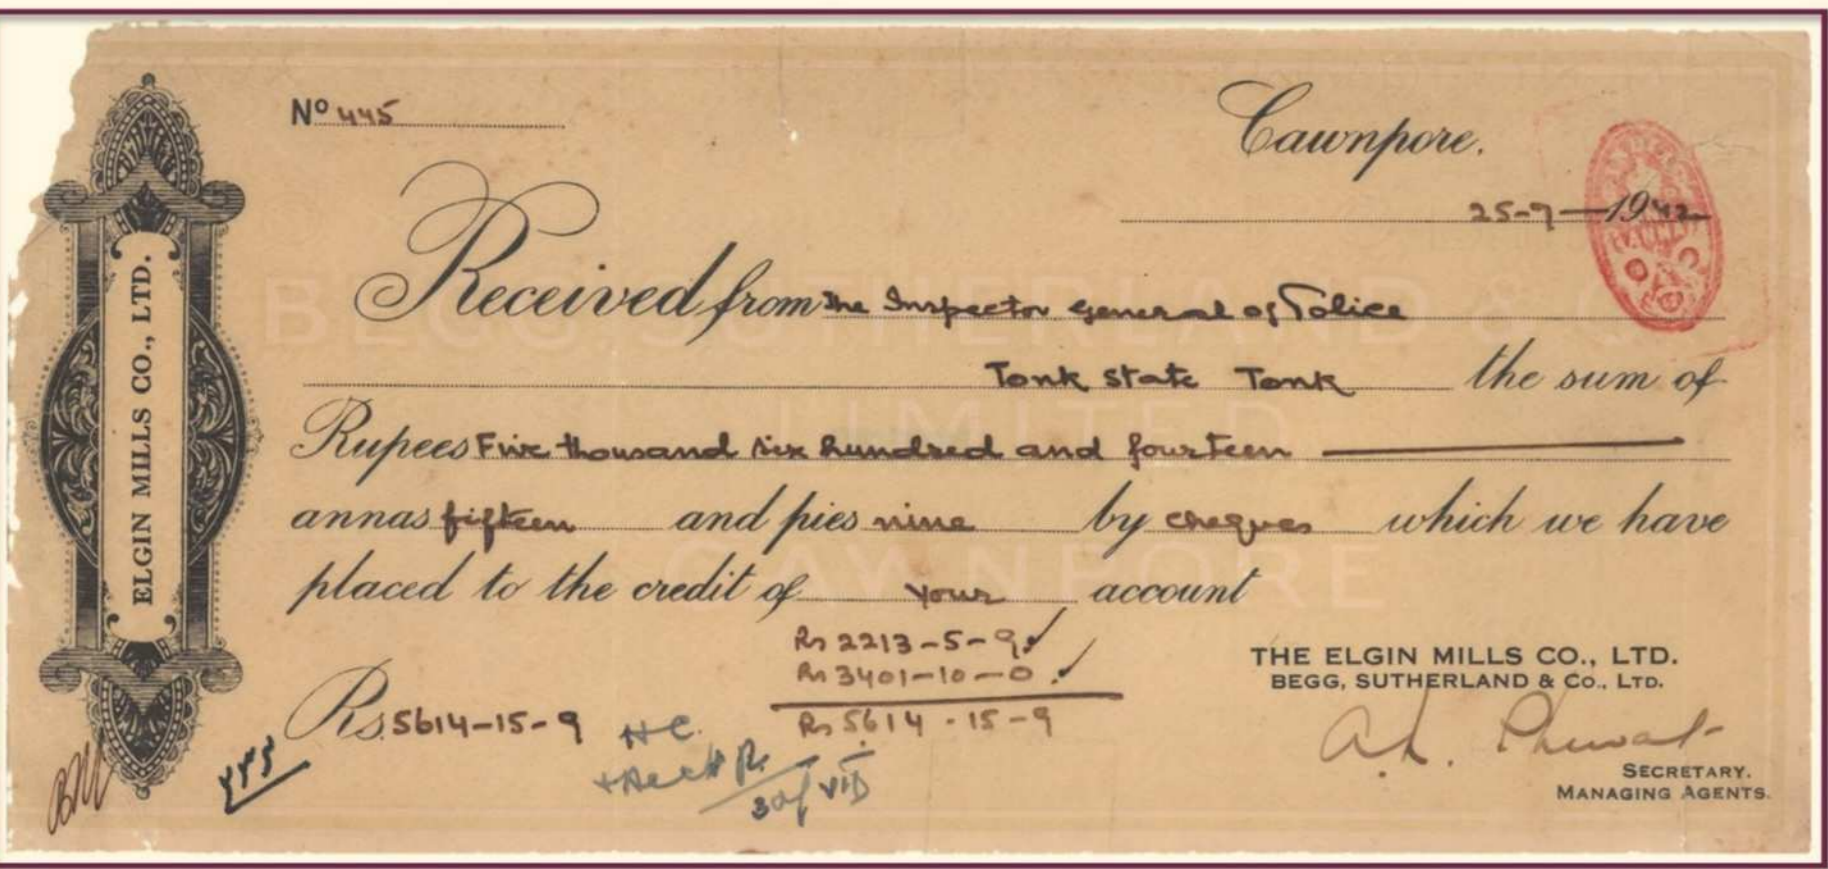 ELGIN MILLS CO., LTD.
No 445
Cawnpore.
25-9-1942
Received from The Inspector General of Police
Tonk State Tonk the sum of
Rupees Five thousand six hundred and fourteen
annas fifteen and pies nine by cheques which we have
placed to the credit of your account
Rs 2213-5-9
Rs 3401-10-0
Rs. 5614-15-9
Rs 5614-15-9
THE ELGIN MILLS CO., LTD.
BEGG, SUTHERLAND & Co., LTD.
SECRETARY.
MANAGING AGENTS.
BEGG SUTHERLAND & C
LIMITED
CAWNPORE